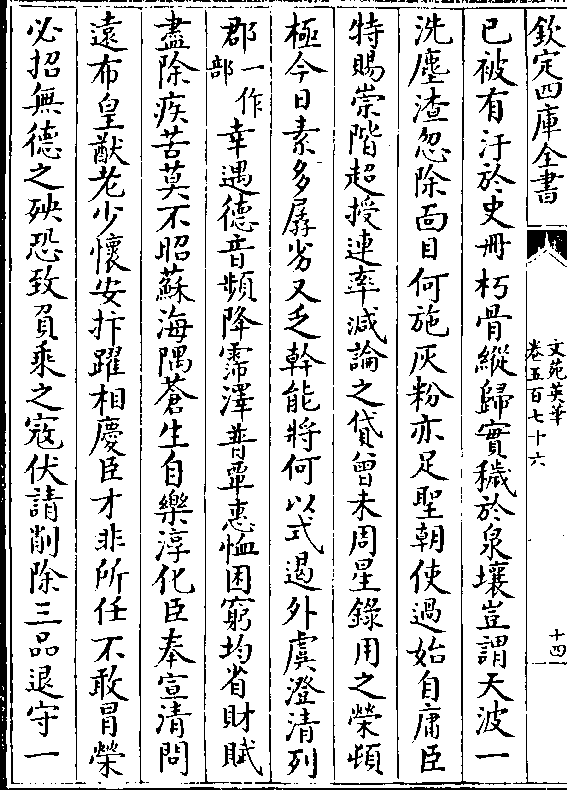 欽定四庫全書
文苑英華
卷五百七十六
十四
已被有汙於史冊朽骨縱歸實穢於泉壤豈謂天波一
洗塵渣忽除面目何施灰粉亦足聖朝使過始自庸臣
特賜崇階超授連率減論之貸曾未周星錄用之榮頓
極今日素多孱劣又乏幹能將何以式遏外虞澄清列
郡一作部幸遇德音頻降霈澤普覃惠恤困窮均省財賦
盡除疾苦莫不昭蘇海隅蒼生自樂淳化臣奉宣清問
遠布皇猷老少懷安抃躍相慶臣才非所任不敢冒榮
必招無德之殃恐致負乘之寇伏請削除三品退守一